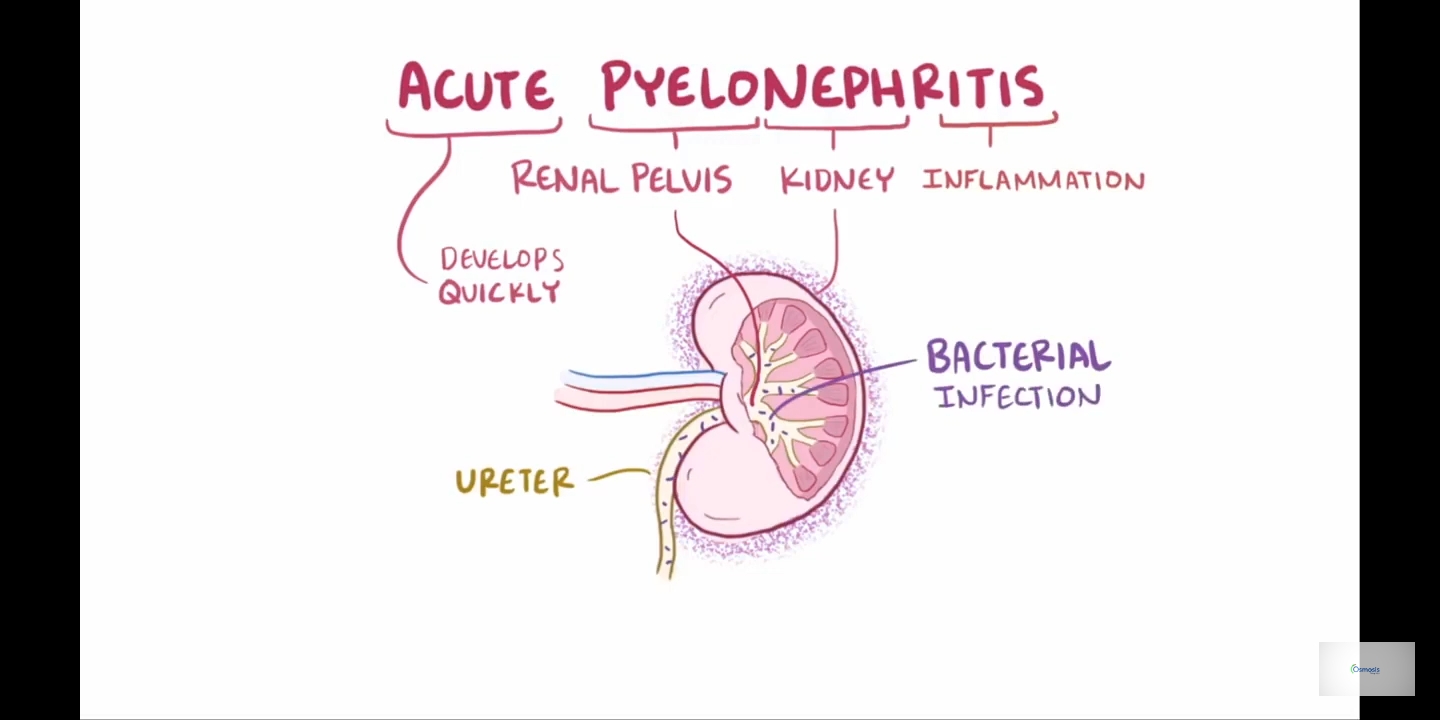 ACUTE PYELONEPHRITIS
RENAL PELVIS KIDNEY INFLAMMATION
DEVELOPS
QUICKLY
BACTERIAL
INFECTION
URETER
Osmosis